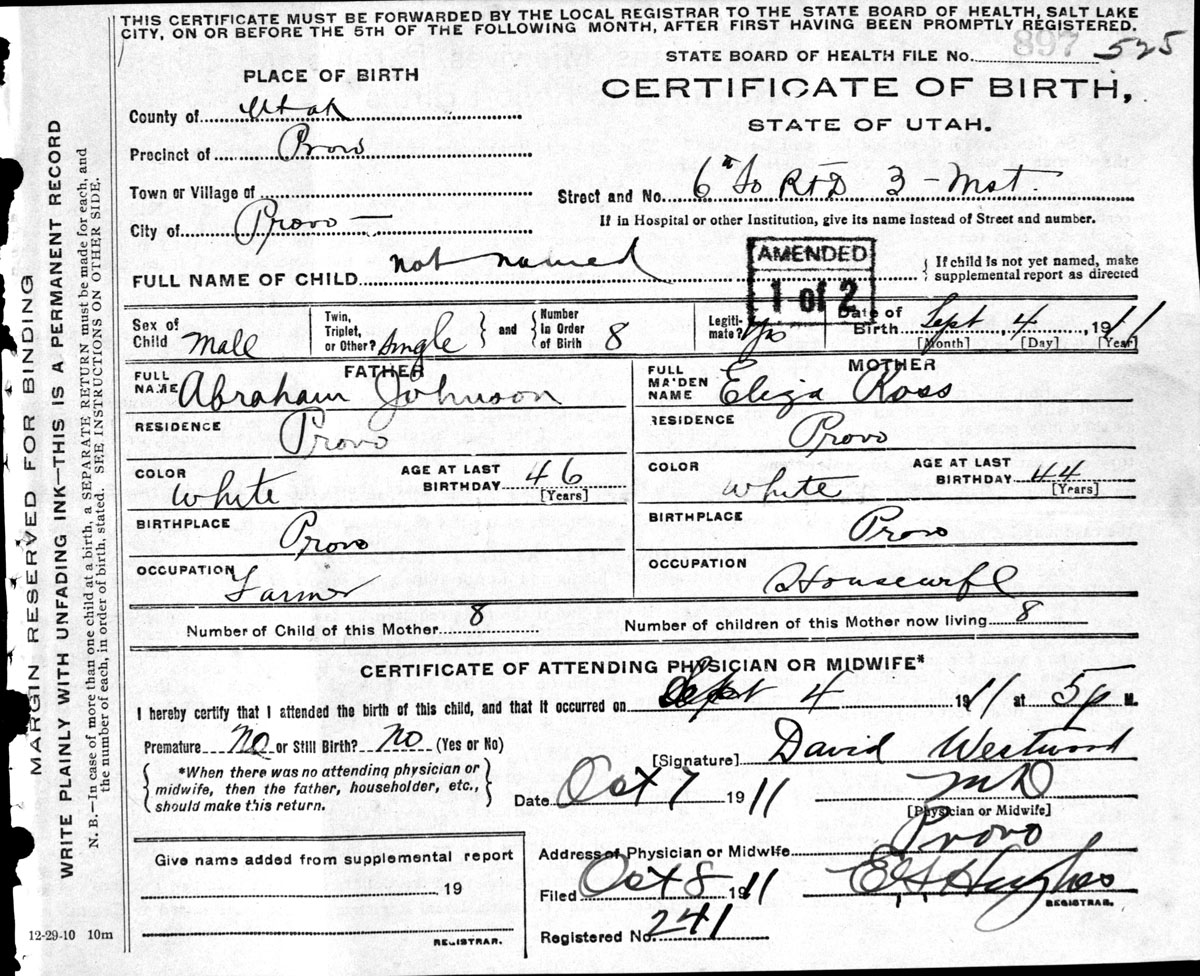 THIS CERTIFICATE MUST BE FORWARDED BY THE LOCAL REGISTRAR TO THE STATE BOARD OF HEALTH, SALT LAKE
CITY, ON OR BEFORE THE 5TH OF THE FOLLOWING MONTH, AFTER FIRST HAVING BEEN PROMPTLY REGISTERED.
STATE BOARD OF HEALTH FILE No. 897 525
PLACE OF BIRTH
CERTIFICATE OF BIRTH,
STATE OF UTAH.
County of Utah
Precinct of Provo
Town or Village of
Street and No. 6 So 3
City of Provo
If in Hospital or other Institution, give its name instead of Street and number.
FULL NAME OF CHILD not named
If child is not yet named, make
supplemental report as directed
AMENDED
1 of 2
Sex of Child Male
Twin, Triplet, or Other? Single and Number in Order of Birth 8
Legitimate? Yes
Date of Birth Sept 4, 1911
[Month] [Day] [Year]
FATHER
FULL NAME Abraham Johnson
RESIDENCE Provo
COLOR White
AGE AT LAST BIRTHDAY 46
[Years]
BIRTHPLACE Provo
OCCUPATION Farmer
MOTHER
FULL MAIDEN NAME Eliza Ross
RESIDENCE Provo
COLOR White
AGE AT LAST BIRTHDAY 44
[Years]
BIRTHPLACE Provo
OCCUPATION Housewife
Number of Child of this Mother 8
Number of children of this Mother now living 8
CERTIFICATE OF ATTENDING PHYSICIAN OR MIDWIFE*
I hereby certify that I attended the birth of this child, and that it occurred on Sept 4 1911 at 5 p M.
Premature No or Still Birth? No (Yes or No)
*When there was no attending physician or
midwife, then the father, householder, etc.,
should make this return.
[Signature] David Westwood
MD
[Physician or Midwife]
Date Oct 7 1911
Address of Physician or Midwife Provo
Filed Oct 8 1911 Hughes
REGISTRAR.
Registered No. 241
Give name added from supplemental report
19
REGISTRAR.
12-29-10 10m
MARGIN RESERVED FOR BINDING
WRITE PLAINLY WITH UNFADING INK—THIS IS A PERMANENT RECORD
N. B.—In case of more than one child at a birth, a SEPARATE RETURN must be made for each, and
the number of each, in order of birth, stated. SEE INSTRUCTIONS ON OTHER SIDE.